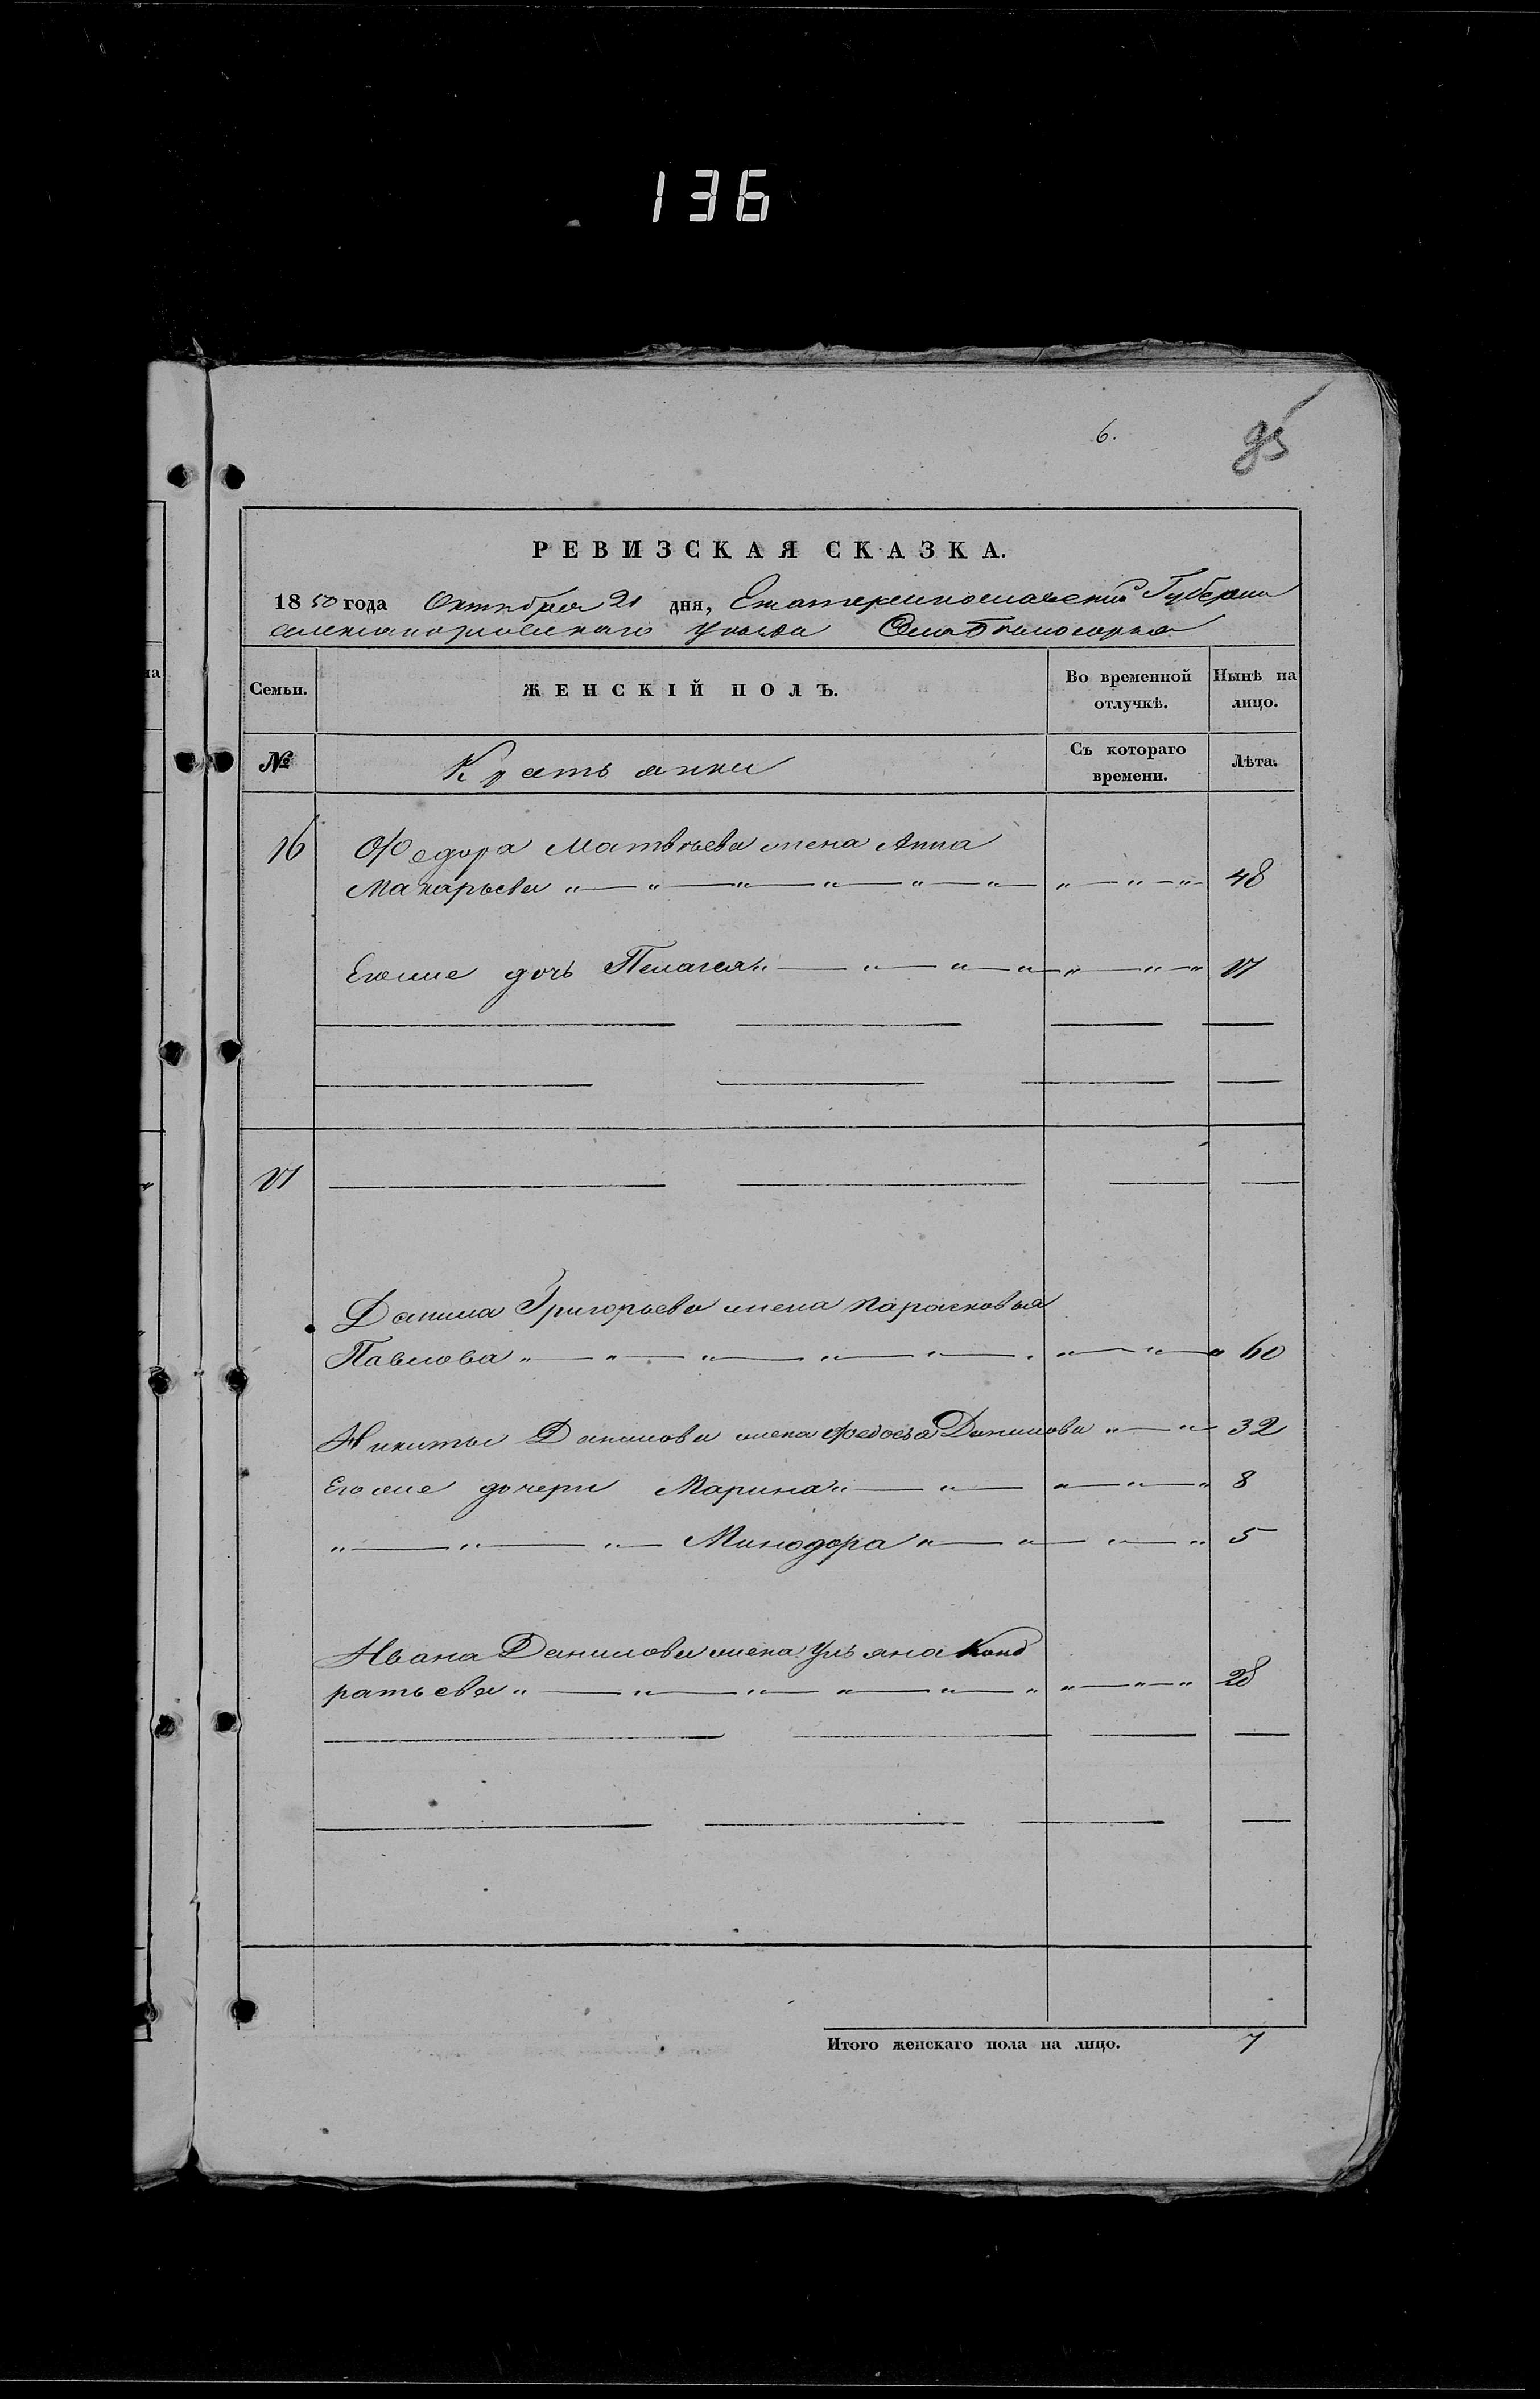 136
6.
95
РЕВИЗСКАЯ СКАЗКА.
1850 года Октября 21 дня, Екатеринославской Губернии
Александровскаго уезда Села Белогорья
Семьи.
ЖЕНСКІЙ ПОЛЪ.
Во временной отлучкѣ.
Нынѣ на лицо.
№
Крестьянки
Съ котораго времени.
Лѣта.
16 Федора Матвѣева жена Анна
Макарьева " — " — " — " — " — " — " — " — " 48
Егоже дочь Пелагея " — " — " — " — " — " — " 17
17
Данила Григорьева жена Парасковья
Павлова " — " — " — " — " — " — " — " 60
Никиты Данилова жена Федосья Данилова " — " 32
Егоже дочери Марина " — " — " — " — " 8
" — " — " — Минодора " — " — " — " 5
Ивана Данилова жена Ульяна Конд
ратьева " — " — " — " — " — " — " — " — " 28
Итого женскаго пола на лицо. 7